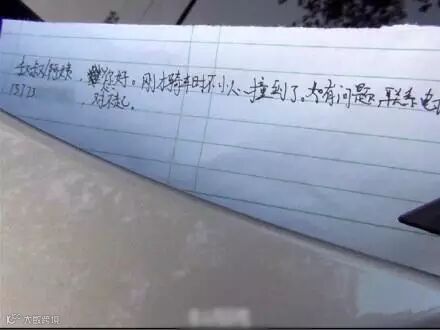 叔叔/阿姨，您好。刚才骑车时不小心撞到了。如有问题，联系电
15123
，对不起。
大数跨境